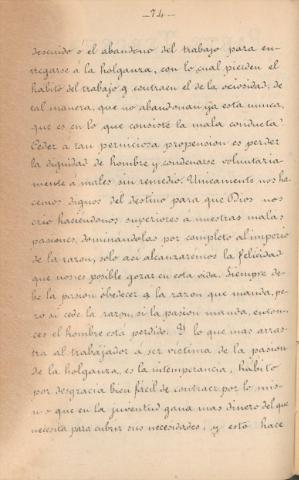 —74—
descuido ó el abandono del trabajo para en-
tregarse á la holganza, con lo cual pierden el
hábito del trabajo y contraen el de la ociosidad, de
tal manera, que no abandonan ya esta nunca,
que es en lo que consiste la mala conducta.
Ceder a tan perniciosa propension es perder
la dignidad de hombre y condenarse voluntaria-
mente a males sin remedio. Unicamente nos ha-
cemos dignos del destino para que Dios nos
crió haciendonos superiores a nuestras malas
pasiones, dominandolas por completo al imperio
de la razon, solo asi alcanzaremos la felicidad
que nos es posible gozar en esta vida. Siempre de-
be la pasion obedecer a la razon que manda, pe-
ro si cede la razon, si la pasion manda, enton-
ces el hombre está perdido. Y lo que mas arras-
tra al trabajador a ser victima de la pasion
de la holganza, es la intemperancia, hábito
por desgracia bien fácil de contraer por lo mis-
mo que en la juventud gana mas dinero del que
necesita para cubrir sus necesidades, y esto hace